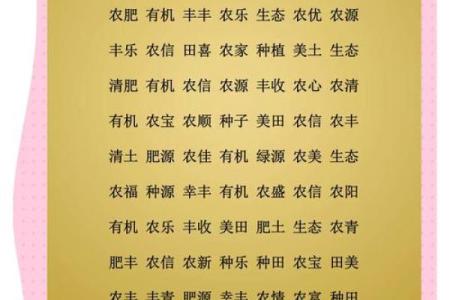 农肥 有机 丰丰 农乐 生态 农优 农源
丰乐 农信 田喜 农家 种植 美土 生态
清肥 有机 农信 农源 丰收 农心 农清
有机 农宝 农顺 种子 美田 农信 农丰
清土 肥源 农佳 有机 绿源 农美 生态
农福 种源 幸丰 有机 农盛 农信 农阳
有机 农乐 丰收 美田 肥土 生态 农青
肥丰 农信 农新 种乐 种田 农宝 田美
农丰 丰青 肥源 幸丰 农情 农富 种田